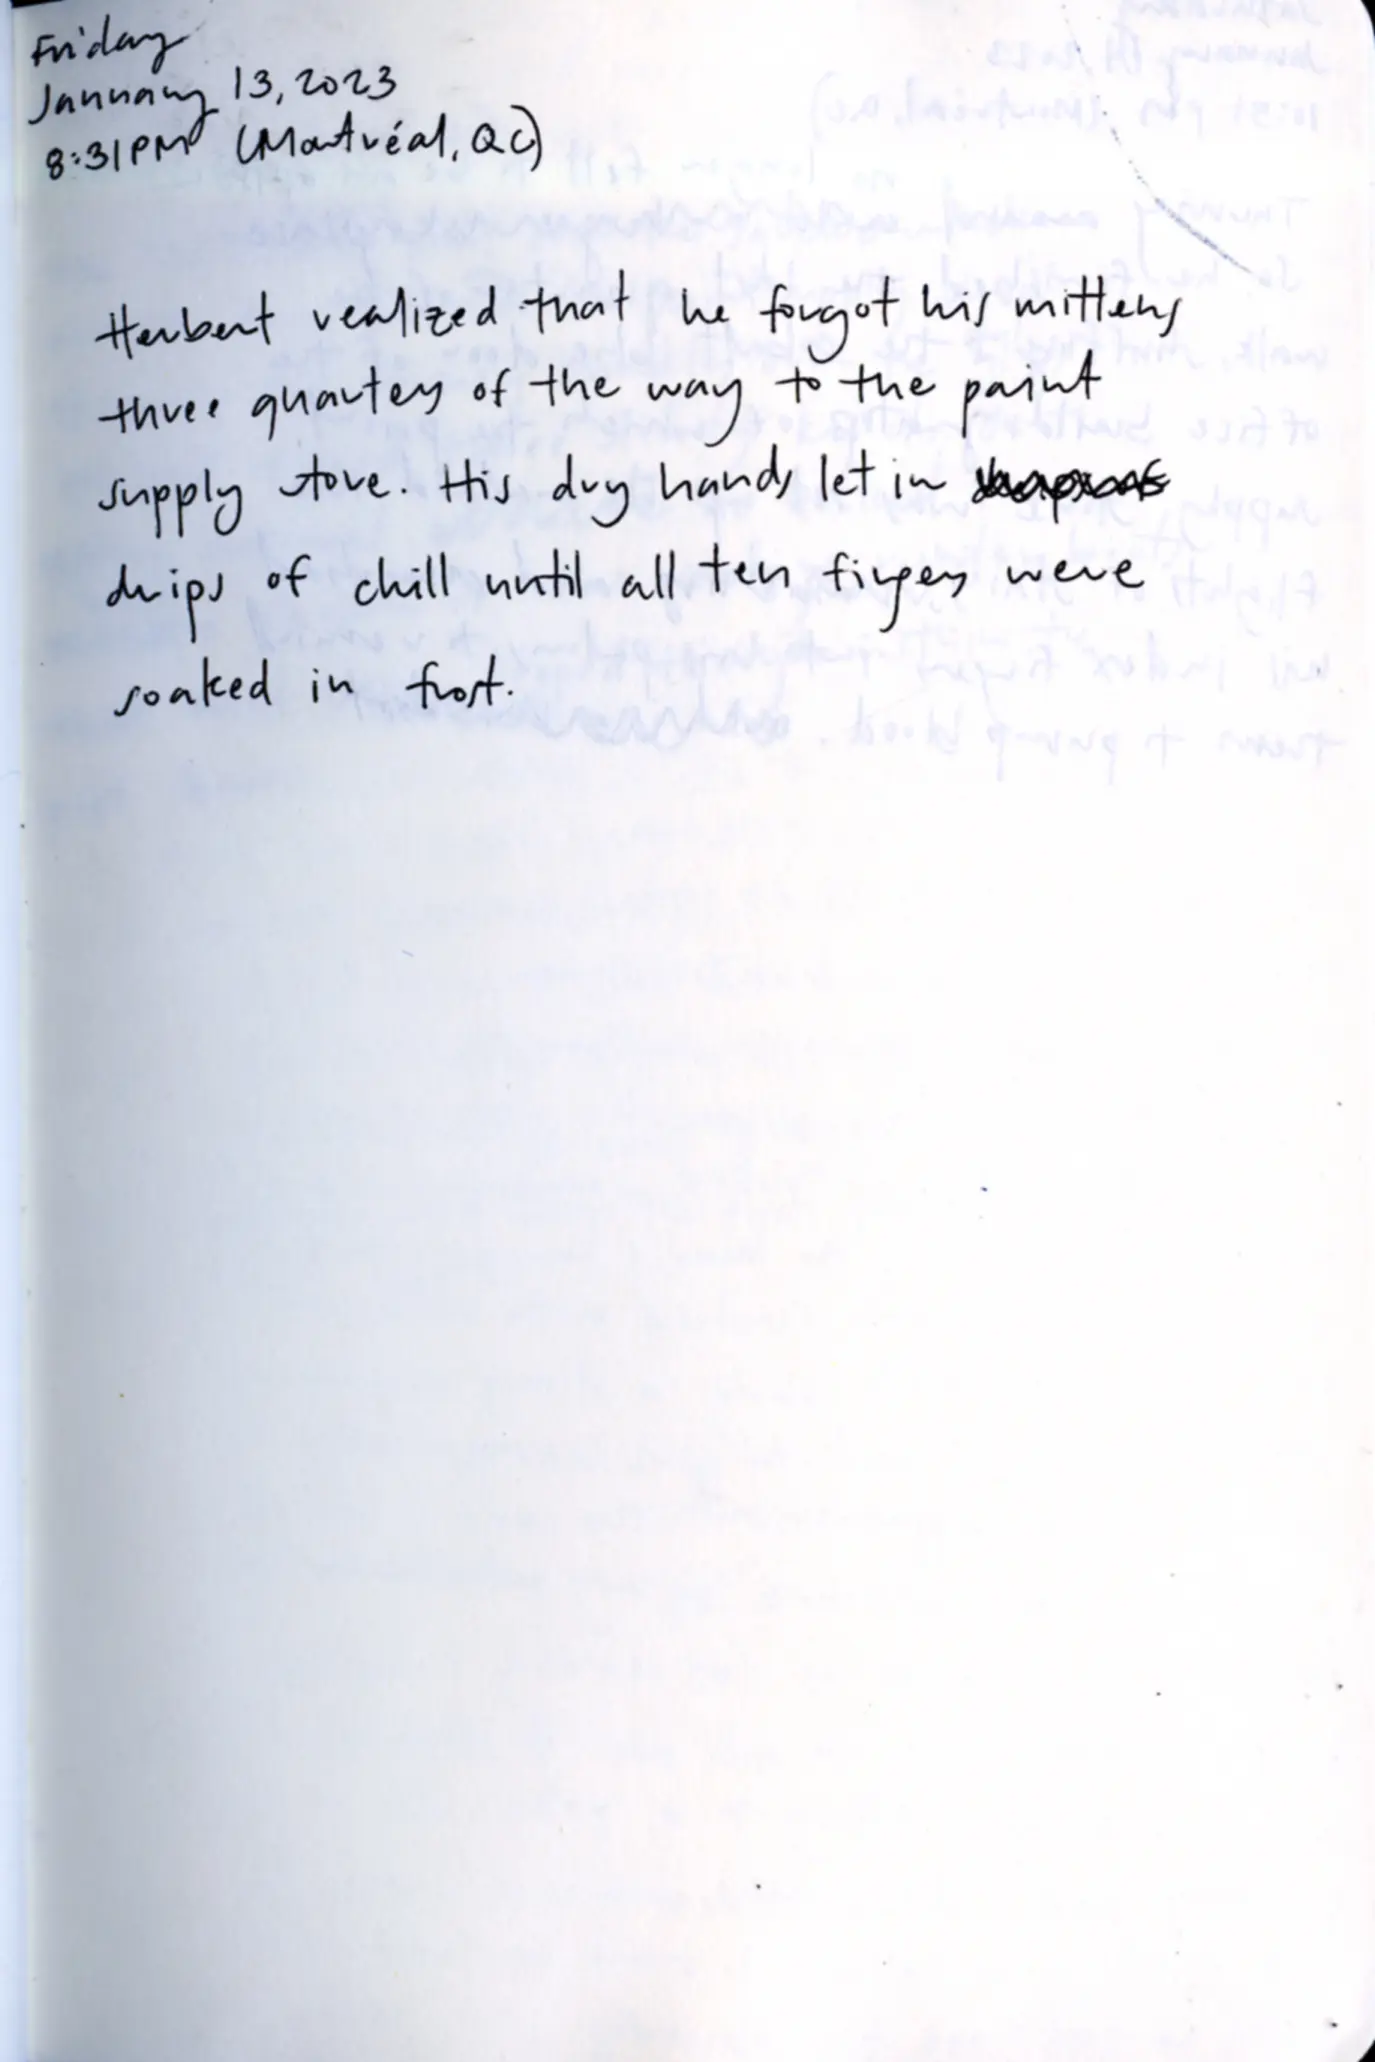 Friday
January 13, 2023
8:31PM (Montréal, QC)
Herbert realized that he forgot his mittens
three quarters of the way to the paint
supply store. His dry hands let in
drips of chill until all ten fingers were
soaked in frost.